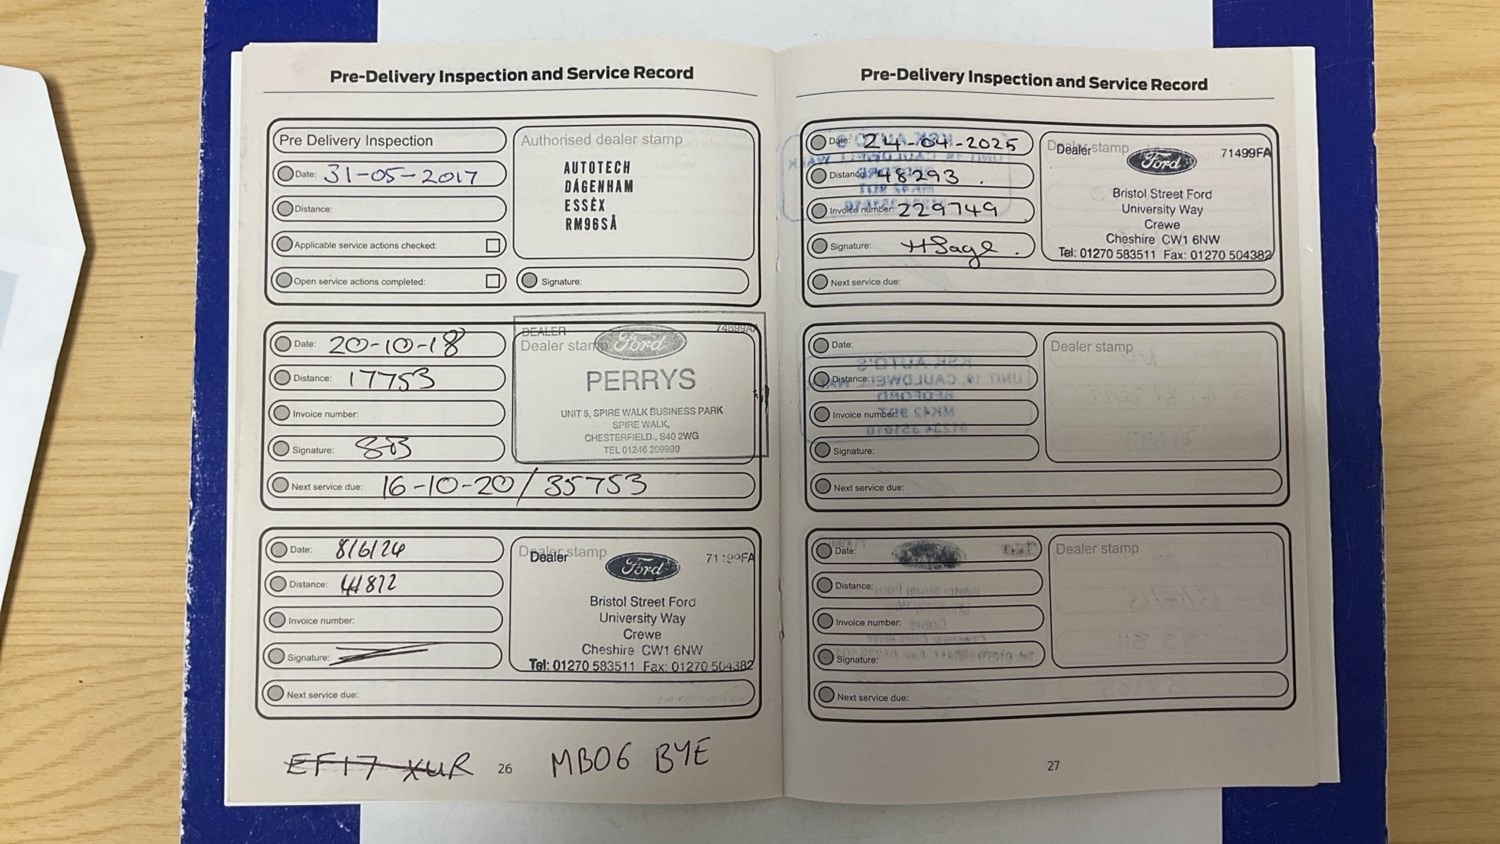 Pre-Delivery Inspection and Service Record
Pre Delivery Inspection
Date: 31-05-2017
Distance:
Applicable service actions checked:
Open service actions completed:
Authorised dealer stamp
AUTOTECH
DAGENHAM
ESSEX
RM96SA
Signature:
Date: 20-10-18
Distance: 17753
Invoice number:
Signature:
Next service due: 16-10-20/35753
DEALER
Dealer stamp
Ford
PERRYS
UNIT 5, SPIRE WALK BUSINESS PARK
SPIRE WALK,
CHESTERFIELD., S40 2WG
TEL 01246 209999
Date: 8/6/24
Distance: 41872
Invoice number:
Signature:
Next service due:
Dealer stamp
Dealer
Ford
Bristol Street Ford
University Way
Crewe
Cheshire CW1 6NW
Tel: 01270 583511 Fax: 01270 504382
EF17 XUR 26 MB06 BYE
Pre-Delivery Inspection and Service Record
Date: 24-04-2025
Distance: 48293
Invoice number: 229749
Signature: HSage.
Next service due:
Dealer stamp
Dealer
Ford
71499FA
Bristol Street Ford
University Way
Crewe
Cheshire CW1 6NW
Tel: 01270 583511 Fax: 01270 504382
Date:
Distance:
Invoice number:
Signature:
Next service due:
Dealer stamp
KSK AUTO'S
UNIT 19, CAULDWELL WALK
BEDFORD
MK42 9DT
01234 351010
Date:
Distance:
Invoice number:
Signature:
Next service due:
Dealer stamp
27